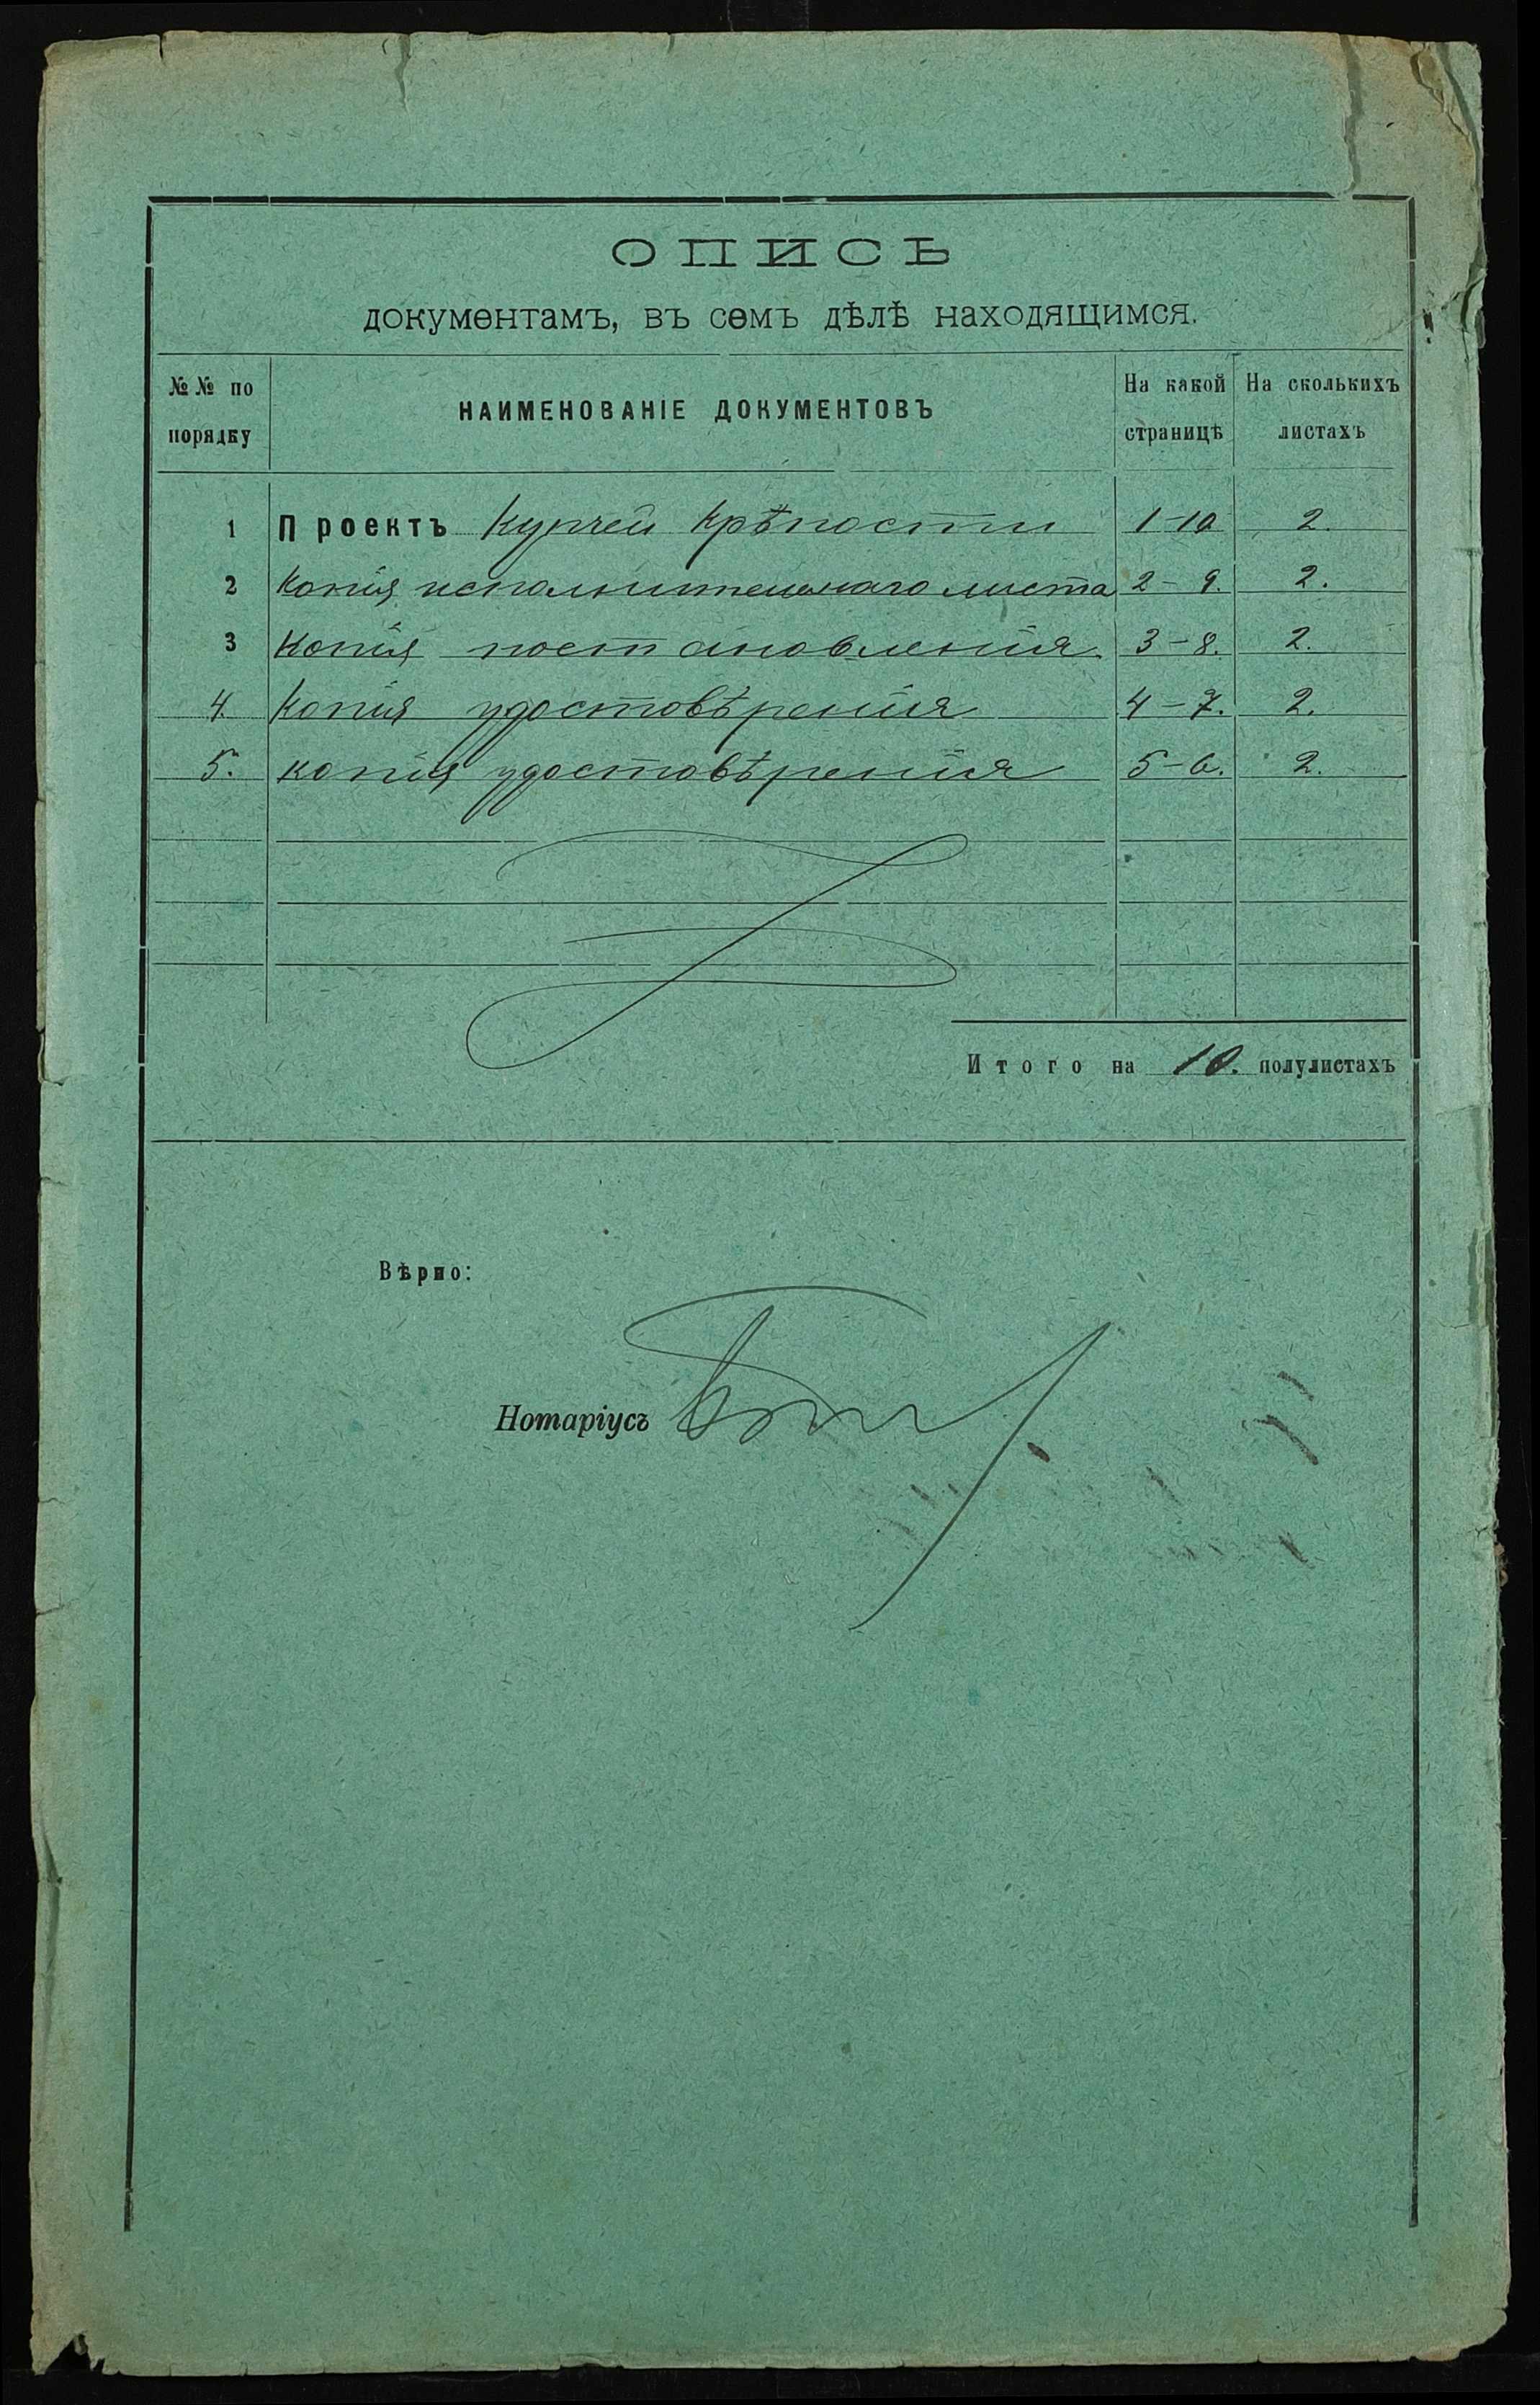 ОПИСЬ
документамъ, въ семъ дѣлѣ находящимся.
№№ по порядку НАИМЕНОВАНІЕ ДОКУМЕНТОВЪ На какой страницѣ На сколькихъ листахъ
1 Проектъ Купчей Крѣпости 1-10 2.
2 Копія исполнительнаго листа 2-9. 2.
3 Копія постановленія 3-8. 2.
4. Копія удостовѣренія 4-7. 2.
5. копія удостовѣренія 5-6. 2.
Итого на 10. полулистахъ
Вѣрно:
Нотаріусъ